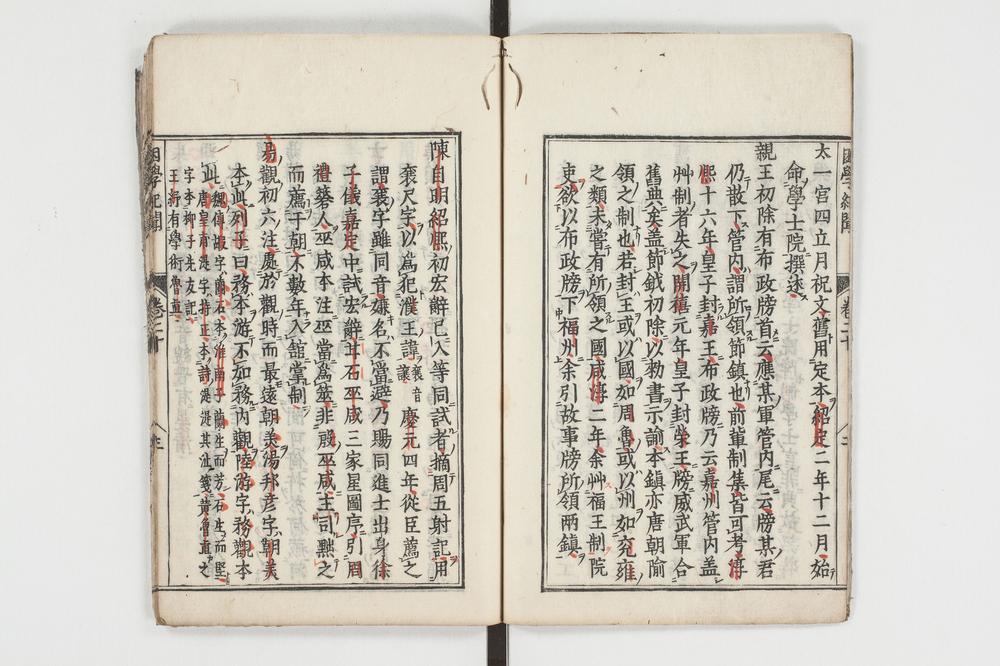 困學紀聞 卷二十
太一宮四立月祝文舊用定本紹定二年十二月始
命學士院撰述
親王初除有布政牓首云應某軍管内尾云牓某君
仍散下管内謂所領節鎮也前輩制集皆可考淳
熙十六年皇子封嘉王布政牓乃云嘉州管内盖
艸制者失之開禧元年皇子封榮王牓威武軍合
舊典矣盖節鉞初除以勑書示諭本鎮亦唐朝隃
領之制也若封王或以國如周魯或以州如兖雍
之類未嘗有所領之國咸淳二年余艸福王制院
吏欲以布政牓下福州余引故事牓所領兩鎮
陳自明紹熙初宏辭已入等同試者摘周五射記用
㐮尺字以爲犯濮王諱
㐮音
讓
慶元四年從臣薦之
謂㐮字雖同音嫌名不當避乃賜同進士出身徐
子儀嘉定中試宏辭甘石巫咸三家星圖序引周
禮簭人巫咸本注巫當爲筮非殷巫咸主司黜之
而薦于朝不數年入館掌制
易觀初六注處於觀時而最遠朝美湯邦彦字朝美
本此列子曰務外游不如務内觀陸游字務觀本
此
魏傅嘏字蘭石本淮南子蘭生而芳石生而堅
唐皇甫湜字持正本詩湜湜其沚箋黄魯直之
字本柳子先友記
王紆有學術魯直
困學紀聞 卷二十